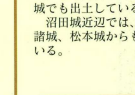 城でも出土している
　沼田城近辺では、
諸城、松本城からも
いる。